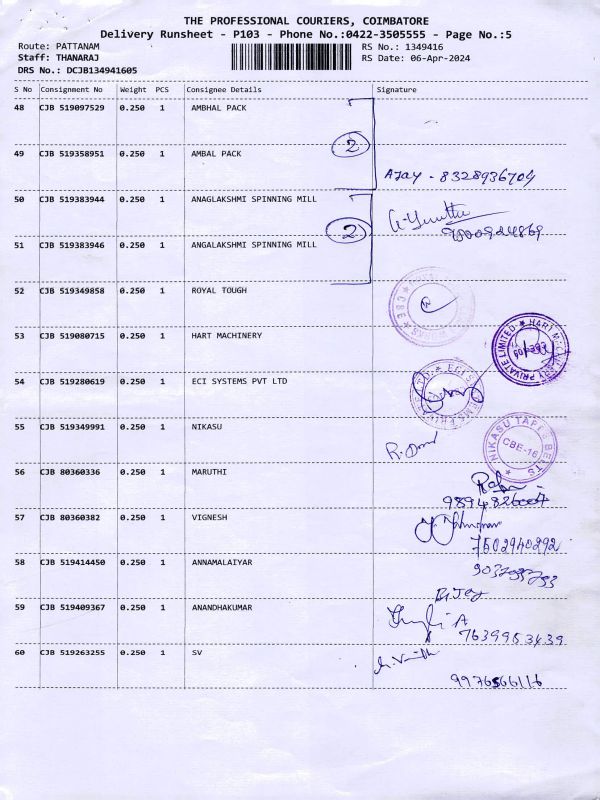 THE PROFESSIONAL COURIERS, COIMBATORE
Delivery Runsheet - P103 - Phone No.:0422-3505555 - Page No.:5
Route: PATTANAM RS No.: 1349416
Staff: THANARAJ RS Date: 06-Apr-2024
DRS No.: DCJB134941605
S No Consignment No Weight PCS Consignee Details Signature
48 CJB 519097529 0.250 1 AMBHAL PACK
2
49 CJB 519358951 0.250 1 AMBAL PACK
AJAY - 8328936704
50 CJB 519383944 0.250 1 ANAGLAKSHMI SPINNING MILL
2
51 CJB 519383946 0.250 1 ANGALAKSHMI SPINNING MILL
52 CJB 519349858 0.250 1 ROYAL TOUGH
CBE
53 CJB 519080715 0.250 1 HART MACHINERY
HART PRIVATE LIMITED
54 CJB 519280619 0.250 1 ECI SYSTEMS PVT LTD
55 CJB 519349991 0.250 1 NIKASU
NIKASU TAPES BELTS
CBE-16
56 CJB 80360336 0.250 1 MARUTHI
57 CJB 80360382 0.250 1 VIGNESH
7502940292
58 CJB 519414450 0.250 1 ANNAMALAIYAR
59 CJB 519409367 0.250 1 ANANDHAKUMAR
7639953439
60 CJB 519263255 0.250 1 SV
9976566116